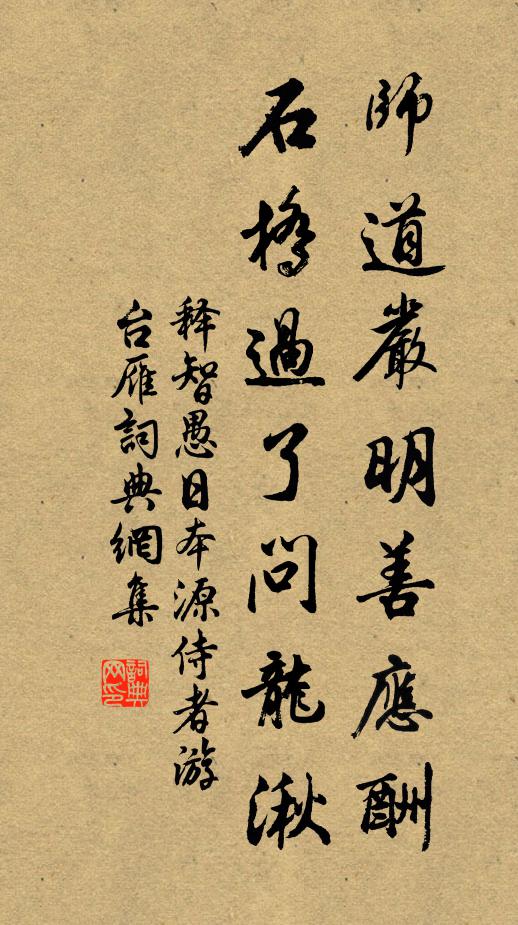 師道嚴明善應酬
石橋過了問龍湫
释智愚日本源侍者游
台雁詞典網集
詞典网印